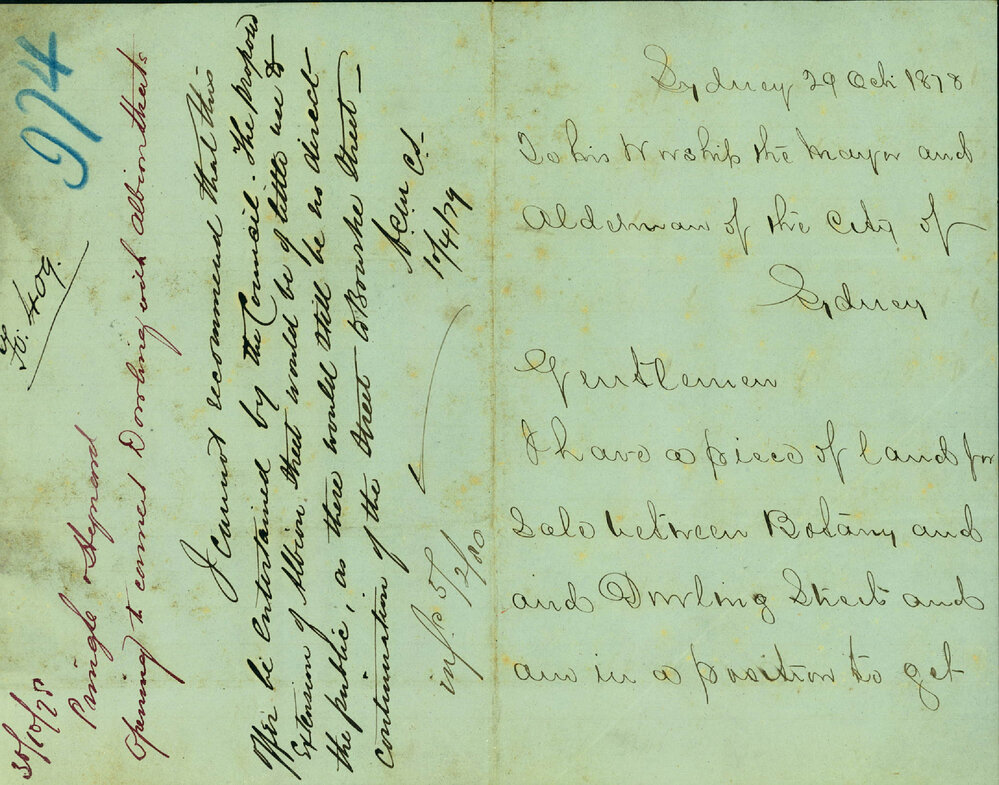 974
No. 409.
30/10/78
Pringle & Heynard
Opening to connect Dowling with Albion streets
I cannot recommend that this
Offer be entertained by the Council. The proposed
Extension of Albion Street would be of little use to
the public, as there would still be no direct
continuation of the Street to Bourke Street —
CS
10/4/79
5/2/80
Sydney 29 Oct 1878
To his Worship the Mayor and
Alderman of the City of
Sydney
Gentlemen
I have a piece of land for
Sale between Botany and
and Dowling Street and
am in a position to get